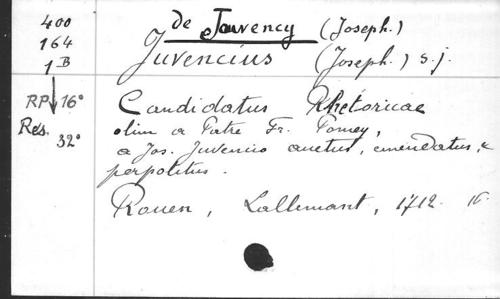 400
164
1B
RP 16°
Rés. 32°
de Jouvency (Joseph.)
Juvencius (Joseph.) s.j.
Candidatus Rhetoricae
olim a Patre Fr. Pomey,
a Jos. Juvencio auctus, emendatus, &
perpolitus.
Rouen, Lallemant, 1712. 16.